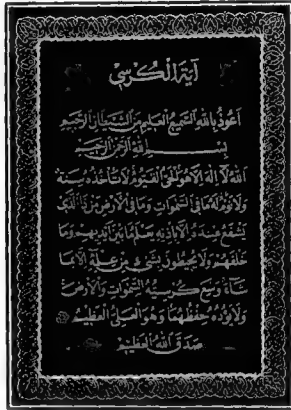 آيَةُ الْكُرْسِيِّ
أَعُوذُ بِاللهِ السَّمِيعِ الْعَلِيمِ مِنَ الشَّيْطَانِ الرَّجِيمِ
بِسْمِ اللهِ الرَّحْمٰنِ الرَّحِيمِ
اَللهُ لَا إِلٰهَ إِلَّا هُوَ الْحَيُّ الْقَيُّومُ لَا تَأْخُذُهُ سِنَةٌ
وَلَا نَوْمٌ لَهُ مَا فِي السَّمٰوَاتِ وَمَا فِي الْأَرْضِ مَنْ ذَا الَّذِي
يَشْفَعُ عِنْدَهُ إِلَّا بِإِذْنِهِ يَعْلَمُ مَا بَيْنَ أَيْدِيهِمْ وَمَا
خَلْفَهُمْ وَلَا يُحِيطُونَ بِشَيْءٍ مِنْ عِلْمِهِ إِلَّا بِمَا
شَاءَ وَسِعَ كُرْسِيُّهُ السَّمٰوَاتِ وَالْأَرْضَ
وَلَا يَؤُدُهُ حِفْظُهُمَا وَهُوَ الْعَلِيُّ الْعَظِيمُ
صَدَقَ اللهُ الْعَظِيمُ